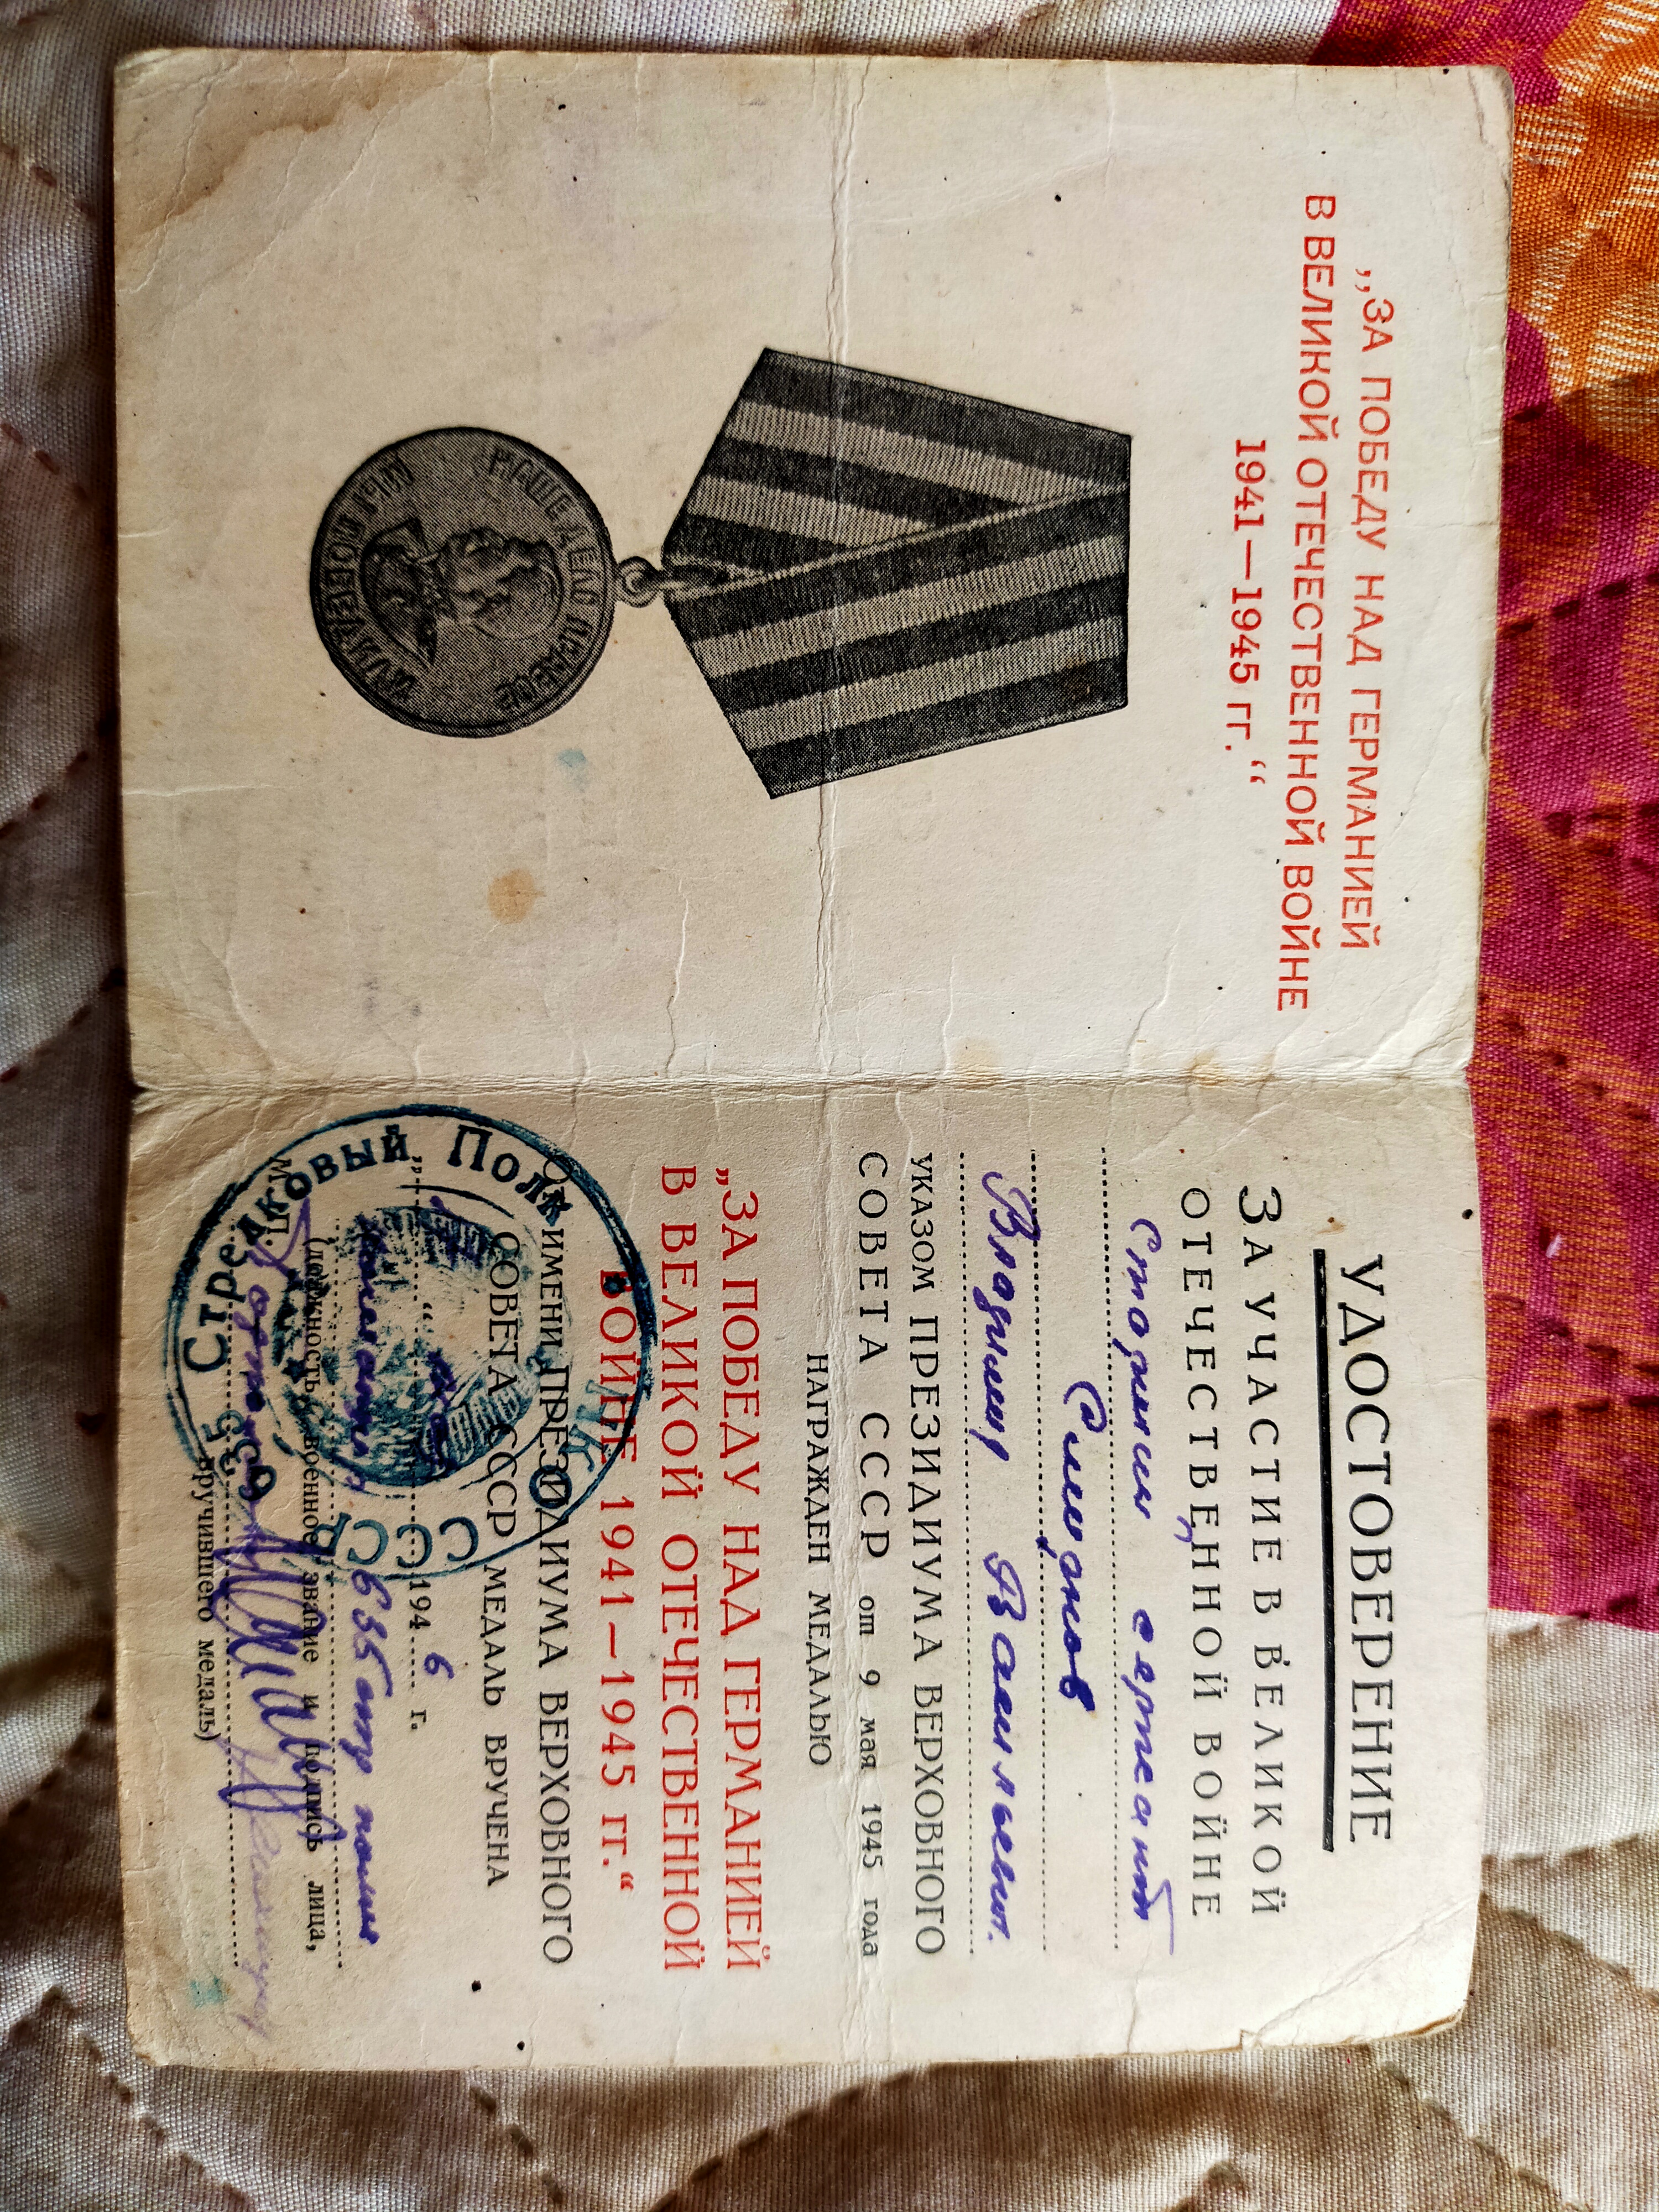 „ЗА ПОБЕДУ НАД ГЕРМАНИЕЙ
В ВЕЛИКОЙ ОТЕЧЕСТВЕННОЙ ВОЙНЕ
1941—1945 гг.“
НАШЕ ДЕЛО ПРАВОЕ
МЫ ПОБЕДИЛИ
УДОСТОВЕРЕНИЕ
ЗА УЧАСТИЕ В ВЕЛИКОЙ
ОТЕЧЕСТВЕННОЙ ВОЙНЕ
Старший сержант
Смирнов
Владимир Васильевич.
УКАЗОМ ПРЕЗИДИУМА ВЕРХОВНОГО
СОВЕТА СССР от 9 мая 1945 года
НАГРАЖДЕН МЕДАЛЬЮ
„ЗА ПОБЕДУ НАД ГЕРМАНИЕЙ
В ВЕЛИКОЙ ОТЕЧЕСТВЕННОЙ
ВОЙНЕ 1941—1945 гг.“
ОТ ИМЕНИ ПРЕЗИДИУМА ВЕРХОВНОГО
СОВЕТА СССР МЕДАЛЬ ВРУЧЕНА
1946 г.
635 стр полка
М. П. (должность, военное звание и подпись лица,
вручившего медаль)
НКО СССР
635 Стрелковый Полк